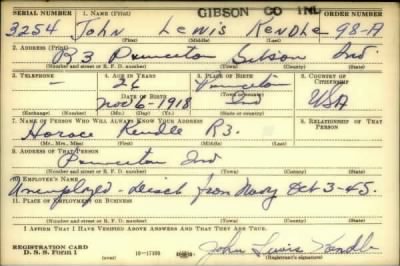 GIBSON CO INL
SERIAL NUMBER 1. NAME (Print) ORDER NUMBER
3254 JOHN LEWIS KENDLE 98-A
(First) (Middle) (Last)
2. ADDRESS (Print)
R3 Princeton Gibson Ind.
(Number and street or R. F. D. number) (Town) (County) (State)
3. TELEPHONE 4. AGE IN YEARS 5. PLACE OF BIRTH 6. COUNTRY OF CITIZENSHIP
— 26 Princeton
DATE OF BIRTH
Nov 6-1918 Ind USA
(Exchange) (Number) (Mo.) (Day) (Yr.) (State or country)
7. NAME OF PERSON WHO WILL ALWAYS KNOW YOUR ADDRESS 8. RELATIONSHIP OF THAT PERSON
Horace Kendle R3.
(Mr., Mrs., Miss) (First) (Middle) (Last)
9. ADDRESS OF THAT PERSON
Princeton Ind
(Number and street or R. F. D. number) (Town) (County) (State)
10. EMPLOYER'S NAME
Unemployed - Disch from Navy Oct 3-45.
11. PLACE OF EMPLOYMENT OR BUSINESS
(Number and street or R. F. D. number) (Town) (County) (State)
I AFFIRM THAT I HAVE VERIFIED ABOVE ANSWERS AND THAT THEY ARE TRUE.
REGISTRATION CARD
D. S. S. Form 1 16-17105 John Lewis Kendle
(Registrant's signature)